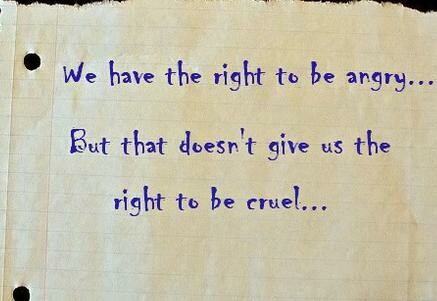 We have the right to be angry...
But that doesn't give us the
right to be cruel...